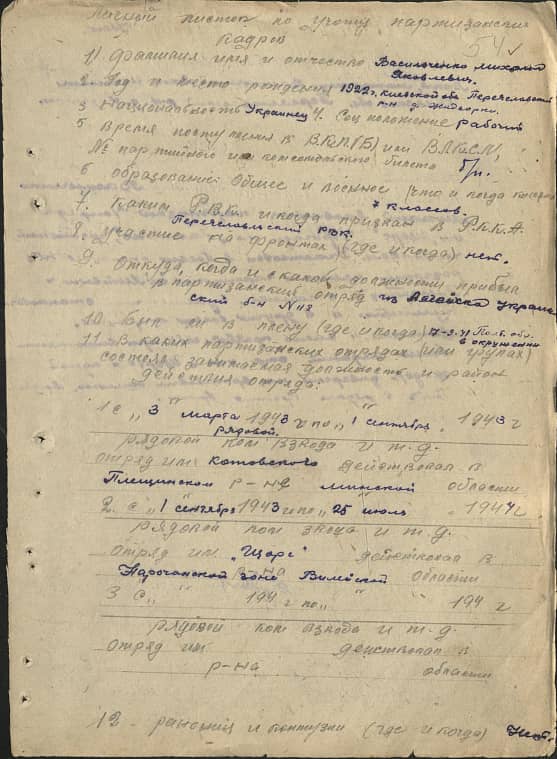 Личный листок по учету партизанских
кадров
54
1) Фамилия имя и отчество Васильченко Михаил
Яковлевич.
2 Год и место рождения 1922г. Киевской обл Переяславский
р-н д.
3 Национальность Украинец 4. Соц положение рабочий
5 Время поступления в В.К.П.(Б) или В.Л.К.С.М,
№ партийного или комсомольского билета б/п.
6 образование: Общее и военное (что и когда
7 классов.
7. Каким Р.В.К. и когда призван в Р.К.К.А.
Переяславский РВК.
8. Участие на фронтах (где и когда) нет.
9. Откуда, когда и с какой должности прибыл
в партизанский отряд из Логойска Украин
ский б-н №118
10. Был ли в плену (где и когда) Полт. обл.
в окружении
11. В каких партизанских отрядах (или групах)
состоял занимаемая должность и район
действия отряда:
1 с „ 3 " марта 1943 г по „ 1 сентября „ 1943 г
рядовой.
рядовой ком взвода и т.д.
отряд им. Котовского действовал в
Плещинском р-не Минской области
2. с „ 1 сентября 1943 г по „ 25 июль " 1944 г
рядовой ком взвода и т.д.
отряд им. „Щорс" действовал в
р-на
Нарочанской зоне Вилейской области
3 с „ " 194 г по „ " 194 г
рядовой ком взвода и т.д.
отряд им. действовал в
р-на области
12 - ранений и контузий (где и когда) нет.